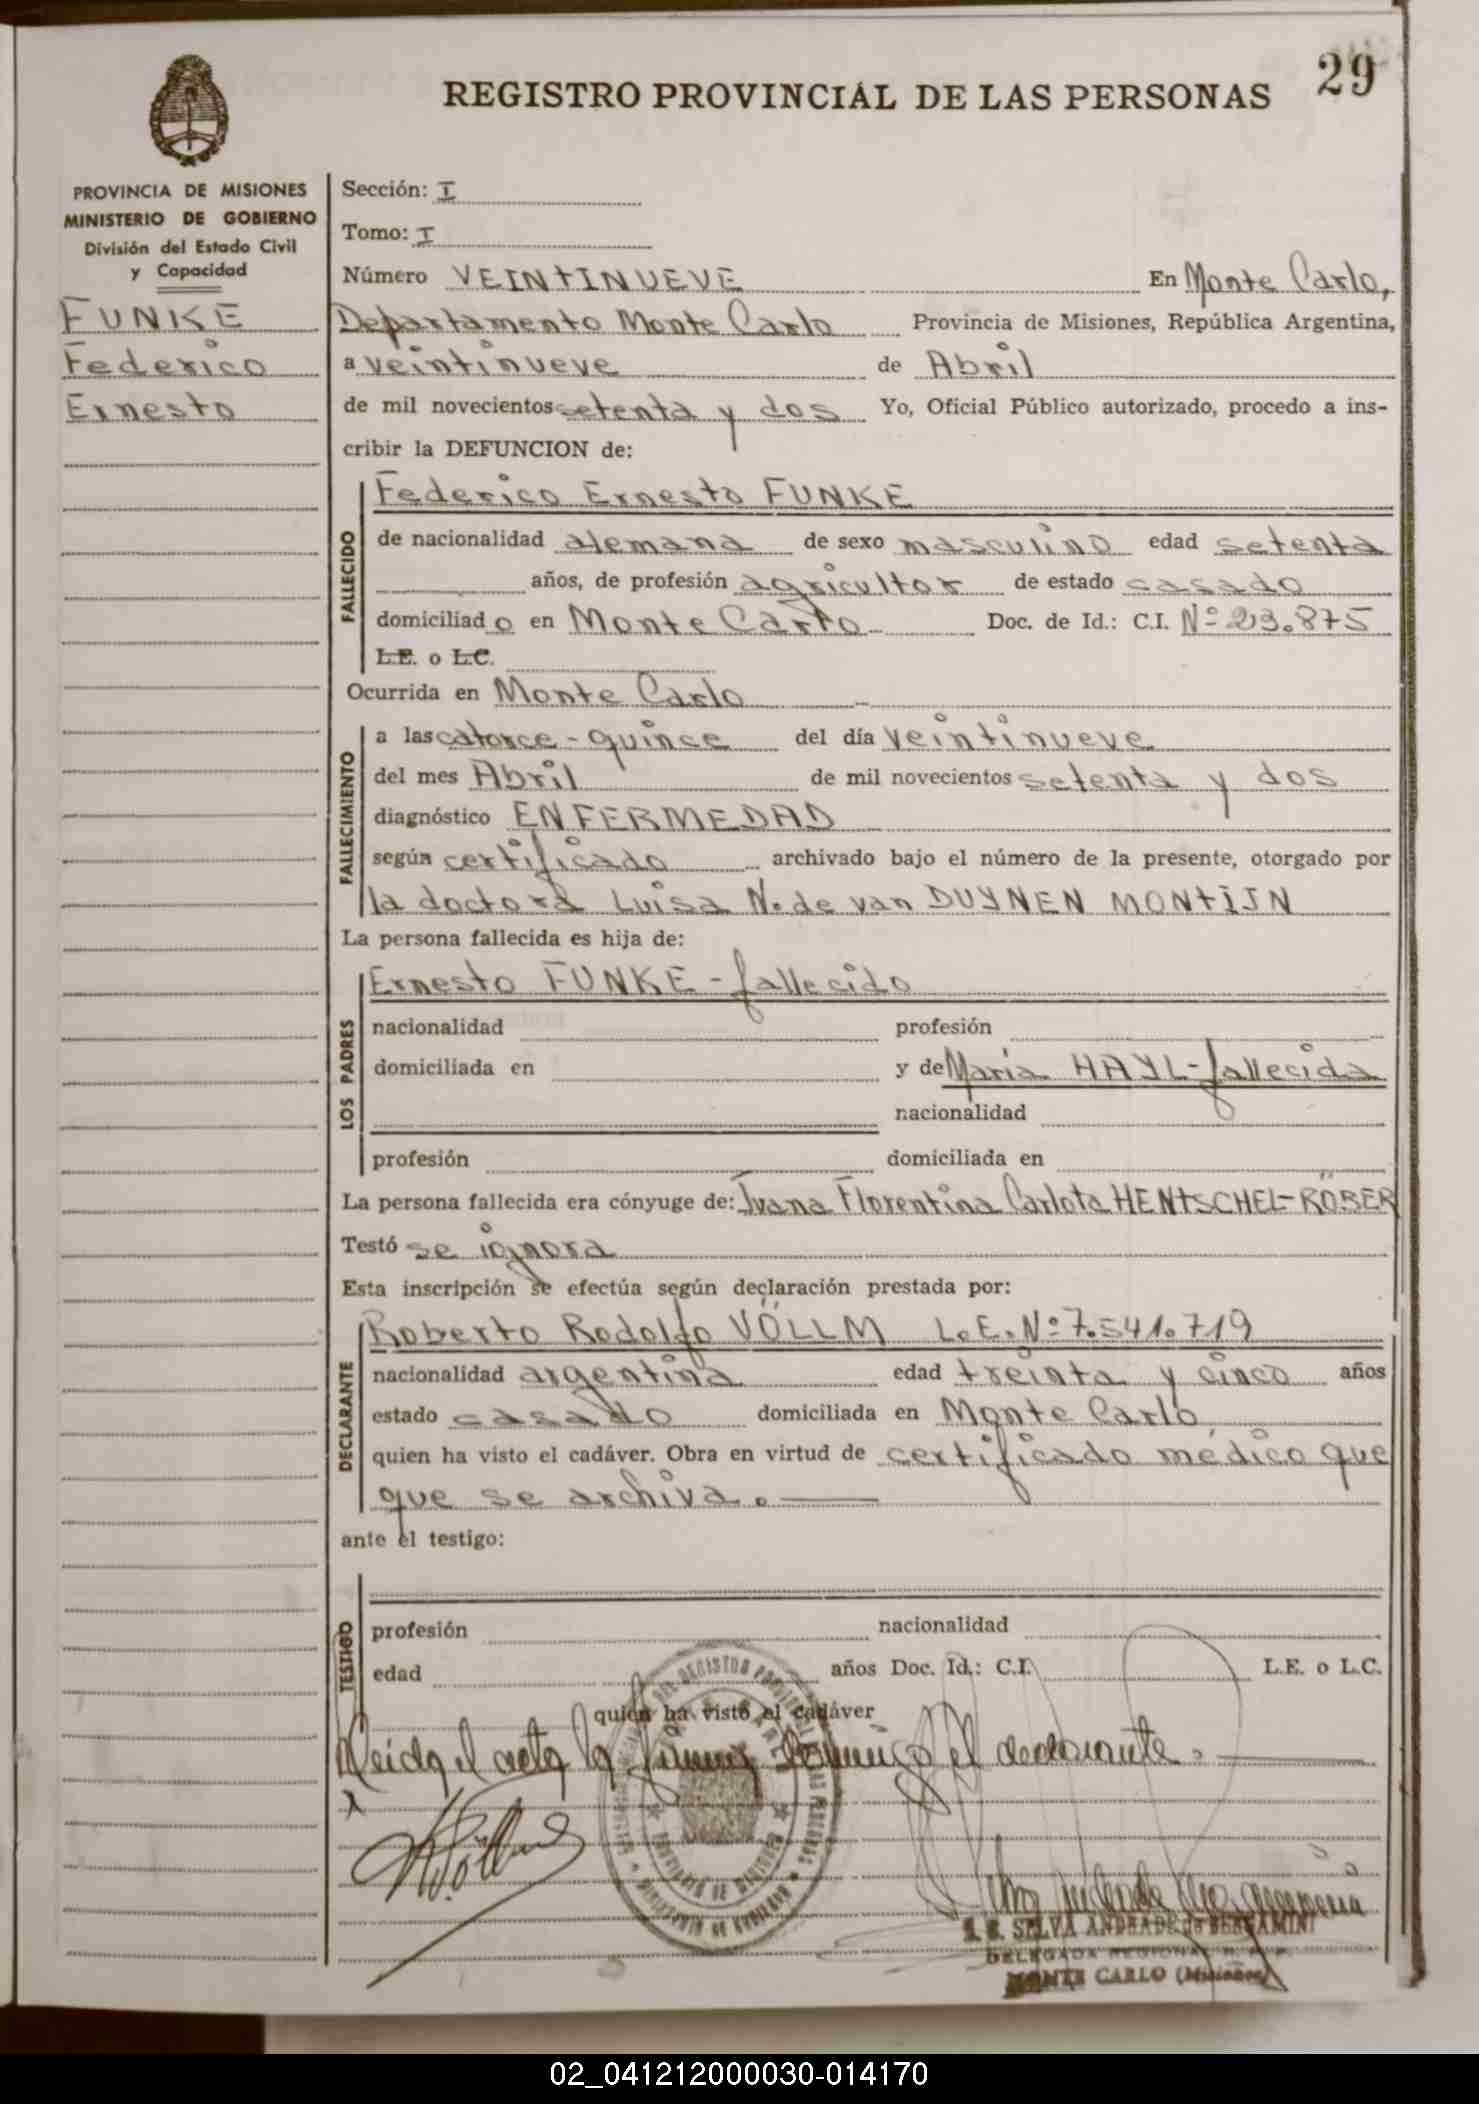 29
REGISTRO PROVINCIAL DE LAS PERSONAS
PROVINCIA DE MISIONES
MINISTERIO DE GOBIERNO
División del Estado Civil
y Capacidad
FUNKE
Federico
Ernesto
Sección: I
Tomo: I
Número VEINTINUEVE En Monte Carlo,
Departamento Monte Carlo Provincia de Misiones, República Argentina,
a veintinueve de Abril
de mil novecientos setenta y dos Yo, Oficial Público autorizado, procedo a ins-
cribir la DEFUNCION de:
FALLECIDO
Federico Ernesto FUNKE
de nacionalidad alemana de sexo masculino edad setenta
años, de profesión agricultor de estado casado
domiciliado en Monte Carlo Doc. de Id.: C.I. Nº 23.875
L.E. o L.C.
Ocurrida en Monte Carlo
FALLECIMIENTO
a las catorce-quince del día veintinueve
del mes Abril de mil novecientos setenta y dos
diagnóstico ENFERMEDAD
según certificado archivado bajo el número de la presente, otorgado por
la doctora Luisa N. de van DUYNEN MONTIJN
La persona fallecida es hija de:
LOS PADRES
Ernesto FUNKE-fallecido
nacionalidad profesión
domiciliada en y de María HAYL-fallecida
nacionalidad
profesión domiciliada en
La persona fallecida era cónyuge de: Ivana Florentina Carlota HENTSCHEL-RÖBER
Testó se ignora
Esta inscripción se efectúa según declaración prestada por:
DECLARANTE
Roberto Rodolfo VÖLLM L.E.Nº 7.541.719
nacionalidad argentina edad treinta y cinco años
estado casado domiciliada en Monte Carlo
quien ha visto el cadáver. Obra en virtud de certificado médico que
que se archiva.
ante el testigo:
TESTIGO
profesión nacionalidad
edad años Doc. Id.: C.I. L.E. o L.C.
quien ha visto el cadáver
Leída el acta la firma conmigo el declarante.
S. B. SELVA ANDRADE de BERGAMINI
DELEGADA REGIONAL R. P. P.
MONTE CARLO (Misiones)
02_041212000030-014170